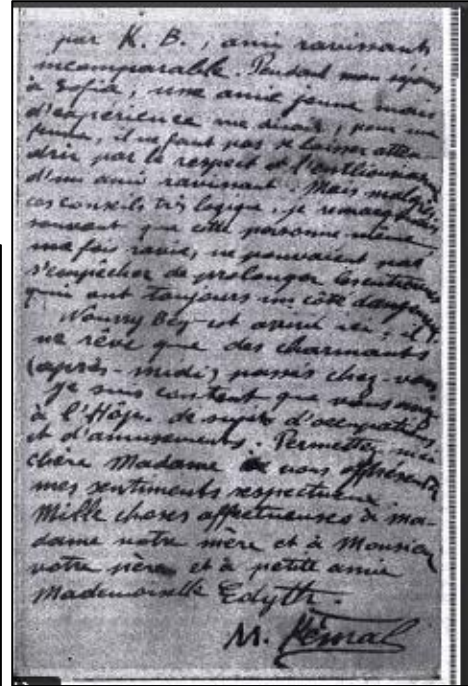 par K. B., ami ravissant
incomparable. Pendant mon séjour
à Sofia, une amie jeune mais
d'expérience me disait, pour une
femme, il ne faut pas se laisser atten-
drir par le respect et l'enthousiasme
d'un ami ravissant. Mais malgré
ces conseils très logique, je remarquais
souvent que cette personne même,
ma fois ravie, ne pouvaient pas
s'empêcher de prolonger les entrevues
qui ont toujours un côté dangereux
Noury Bey est arrivé ici; il
ne rêve que des charmants
(après-midi) passés chez-vous
Je suis content que vous ayez
à l'Hôp. de sujets d'occupations
et d'amusements. Permettez moi
chère Madame de vous offrir
mes sentiments respectueux
Mille choses affectueuses à ma-
dame votre mère et à Monsieur
votre père et à petite amie
Mademoiselle Edyth.
M. Kémal